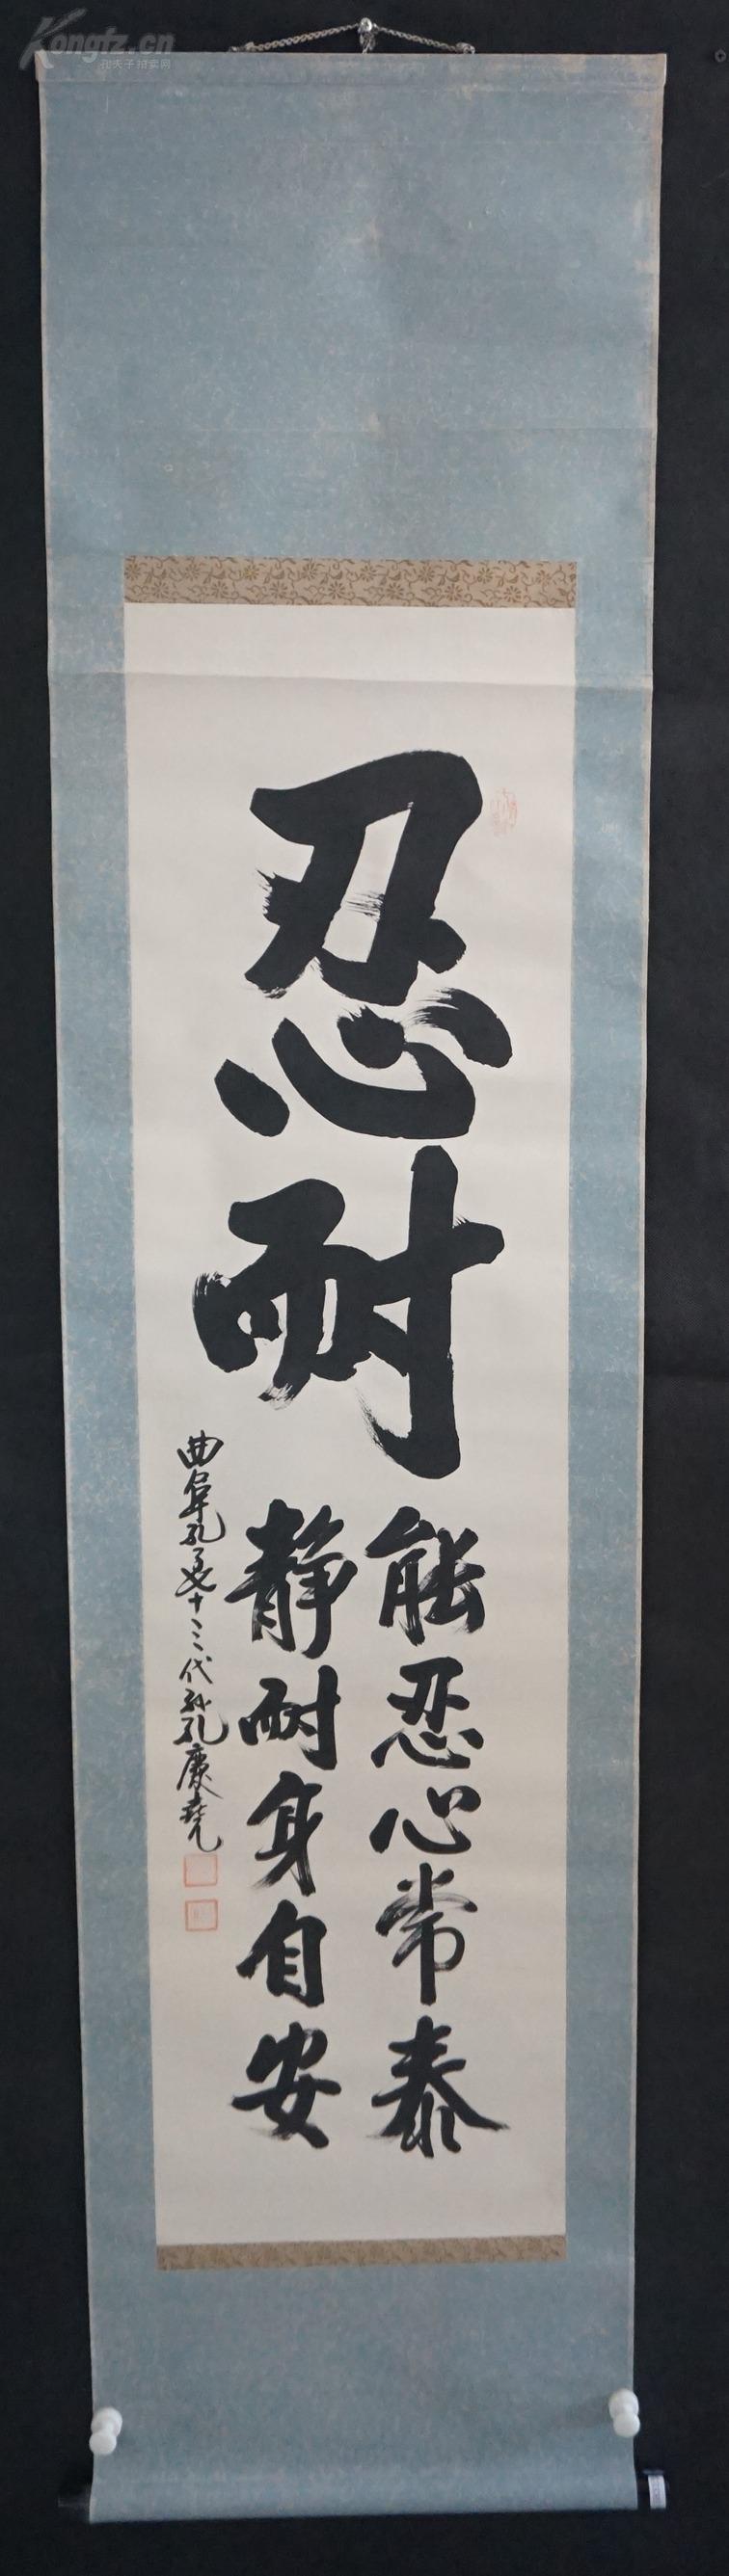 Kongfz.cn
孔夫子拍卖网
忍耐
能忍心常泰
静耐身自安
曲阜孔子七十三代孙孔庆尧